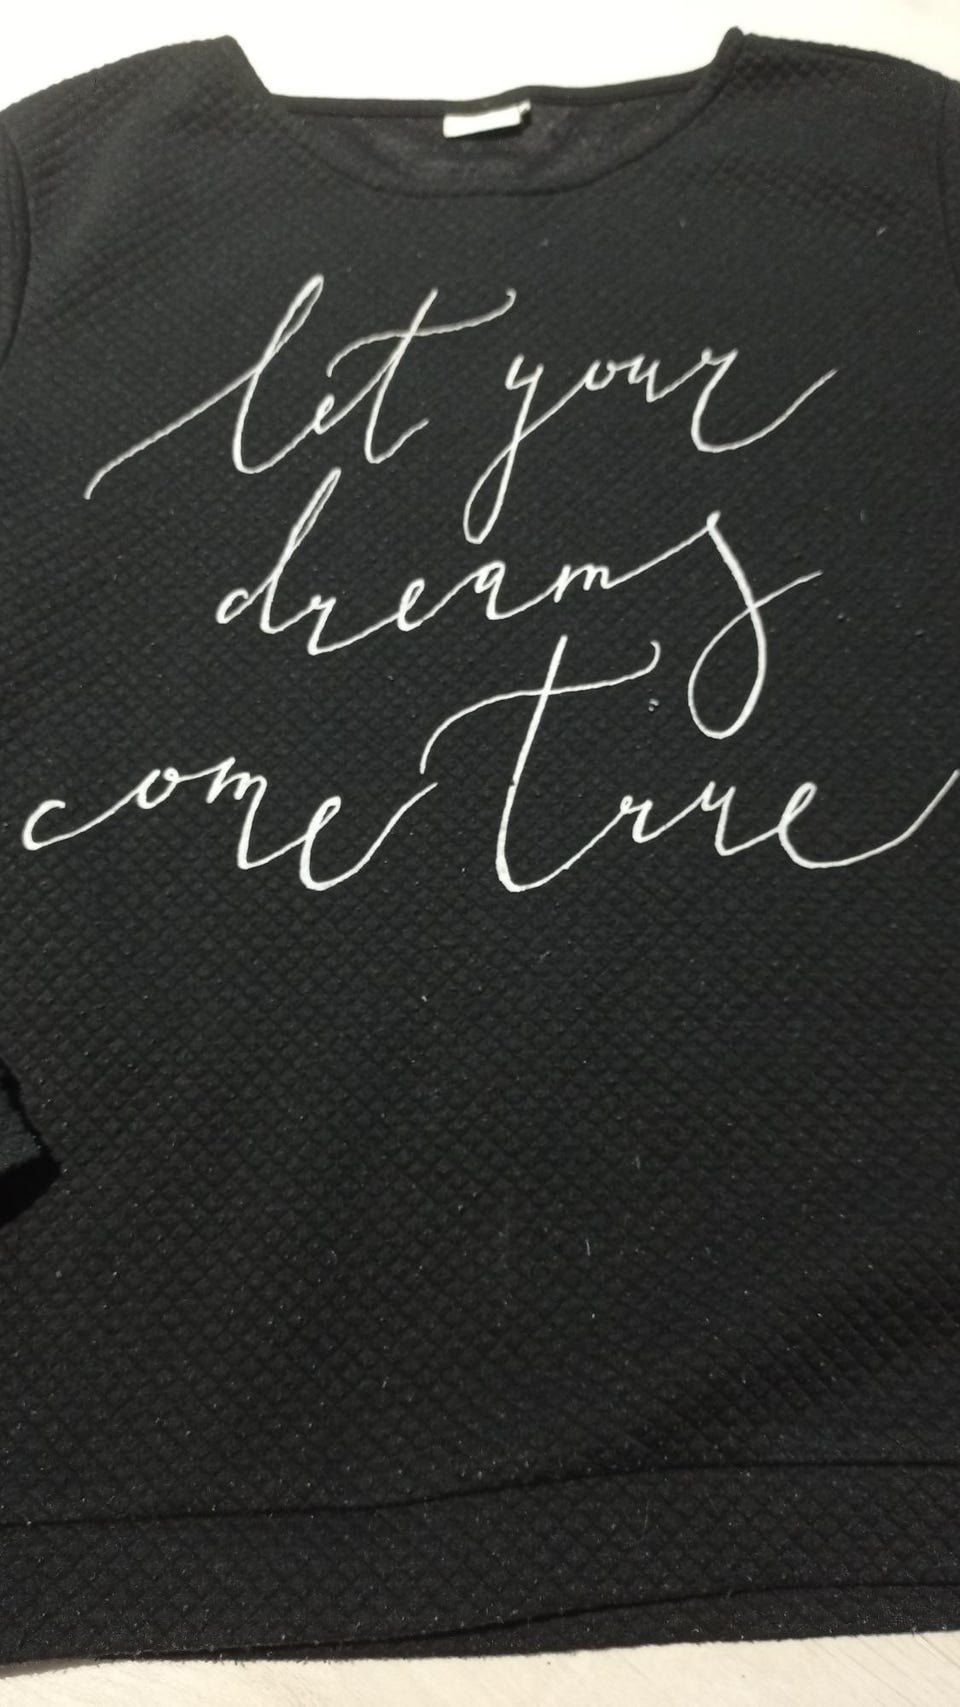 let your
dreams
come true